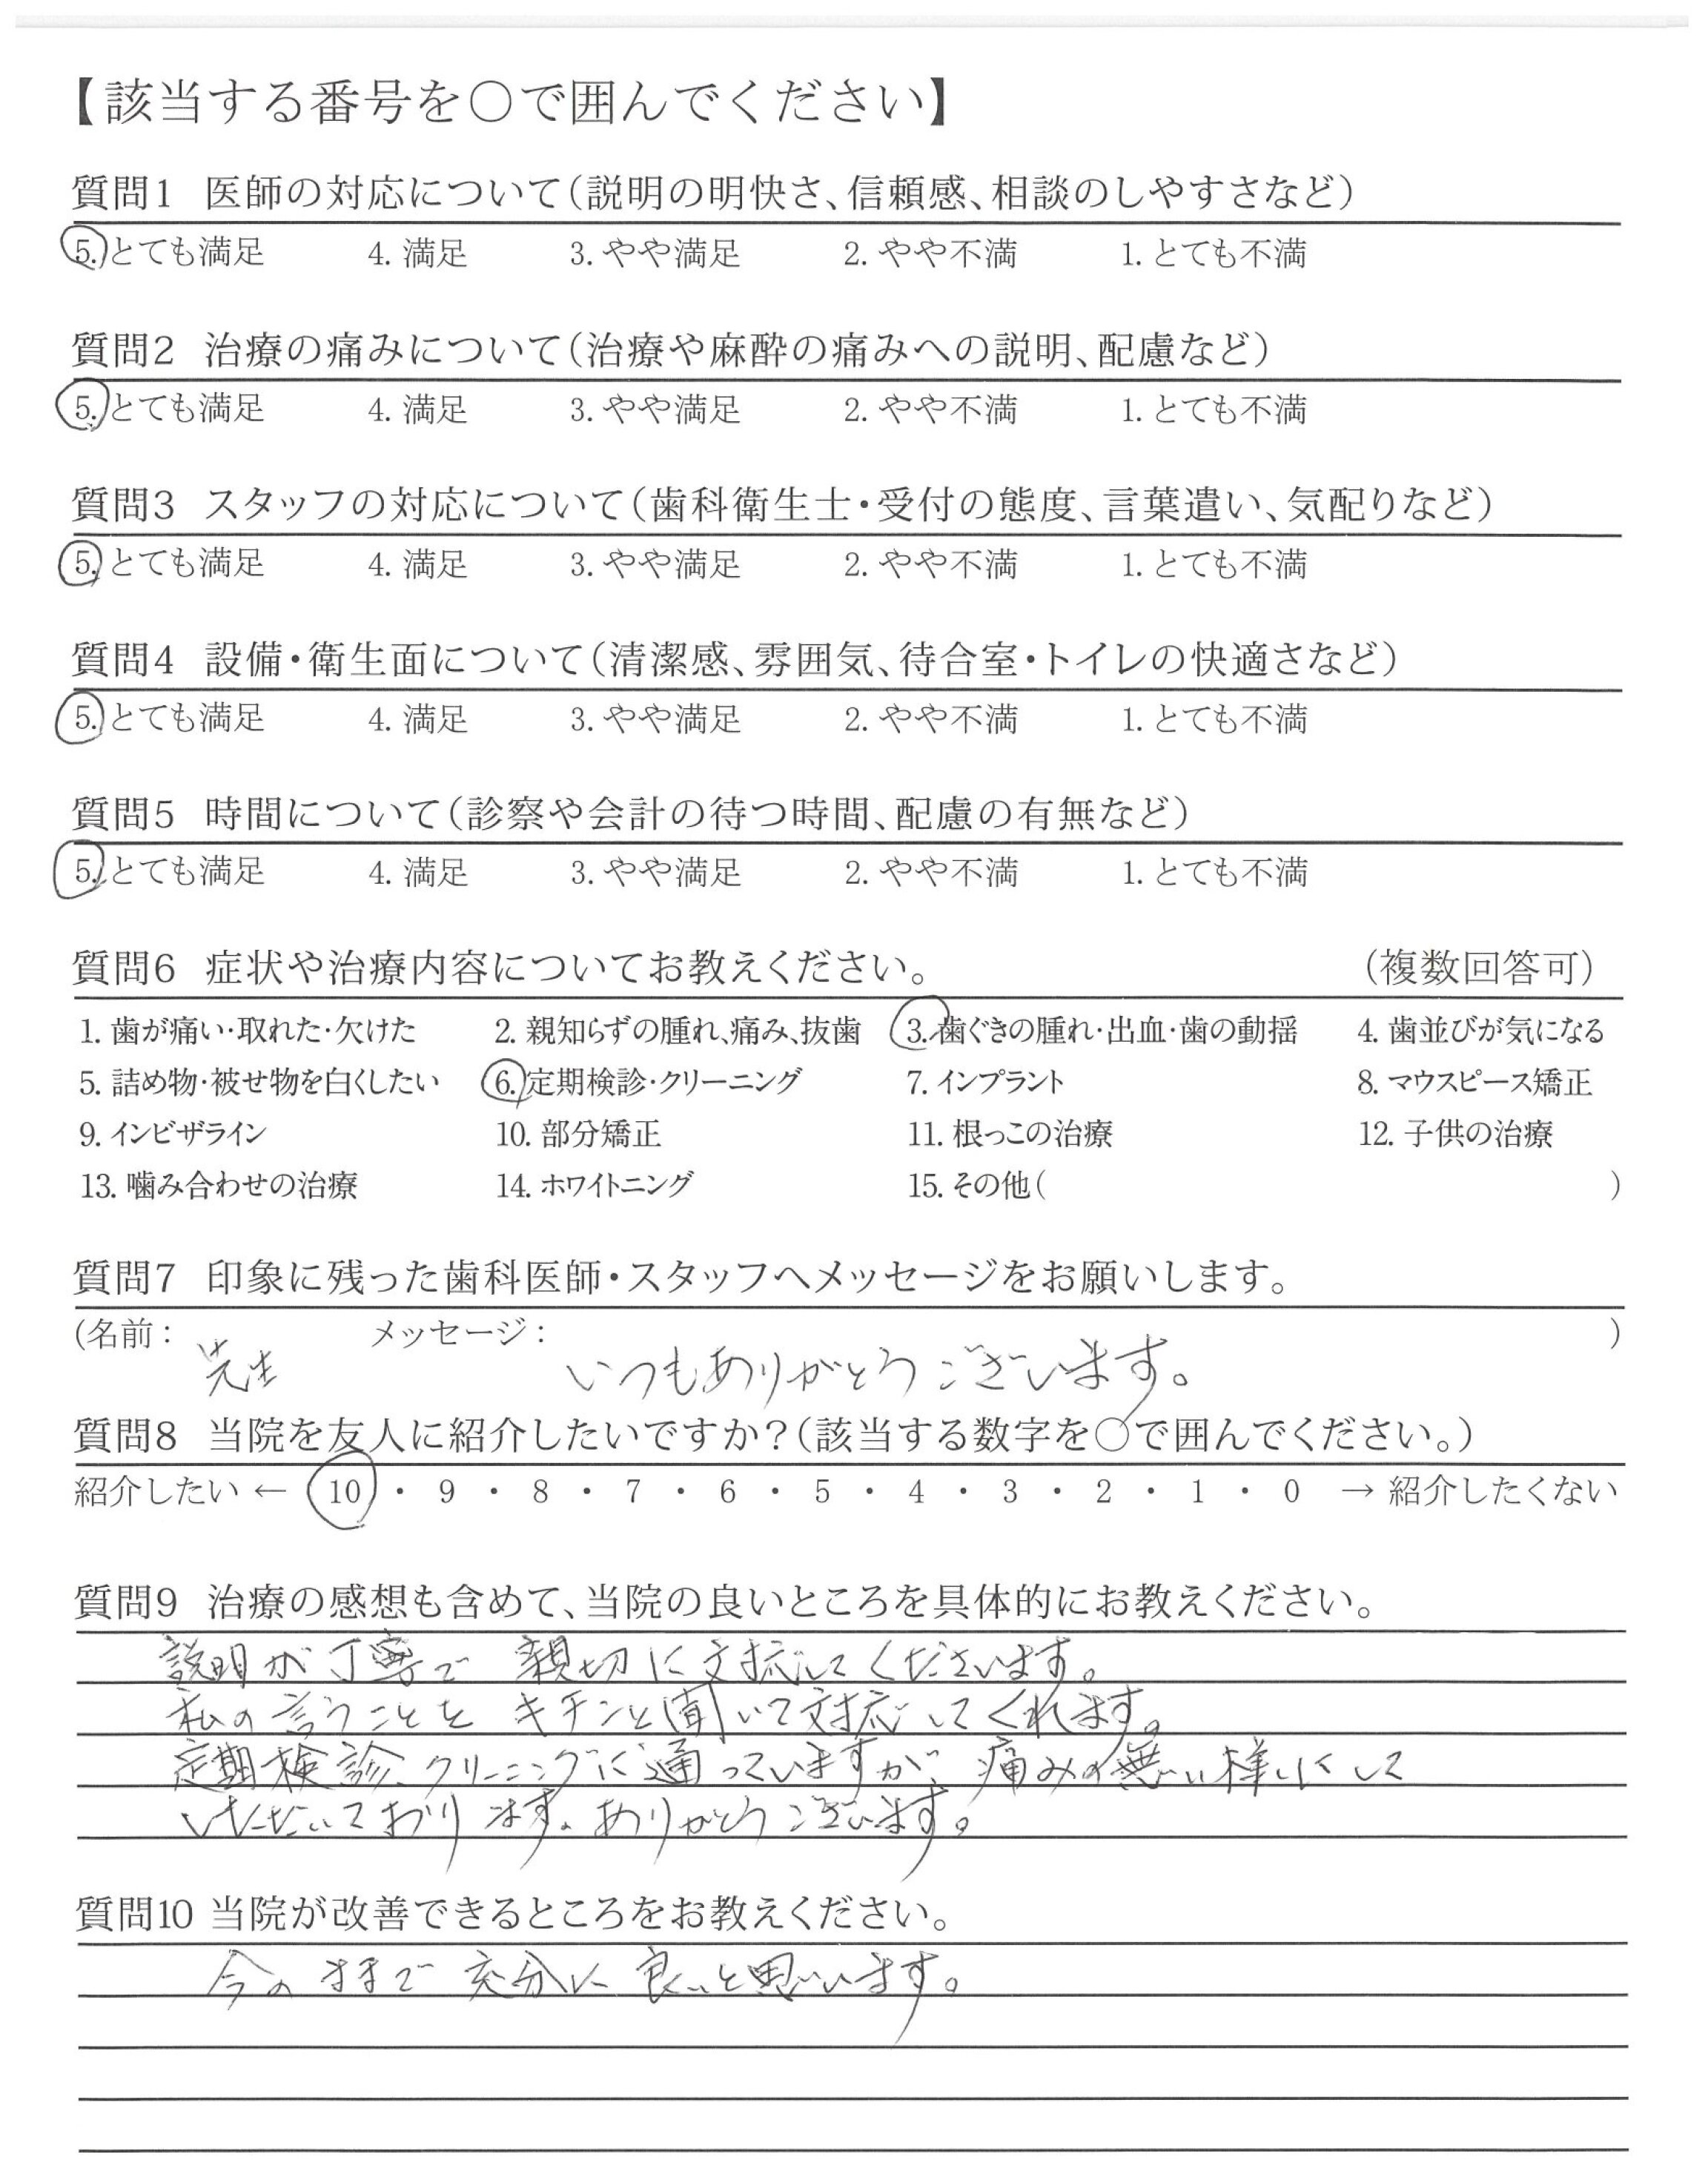 【該当する番号を〇で囲んでください】
質問1 医師の対応について(説明の明快さ、信頼感、相談のしやすさなど)
5. とても満足 4. 満足 3. やや満足 2. やや不満 1. とても不満
質問2 治療の痛みについて(治療や麻酔の痛みへの説明、配慮など)
5. とても満足 4. 満足 3. やや満足 2. やや不満 1. とても不満
質問3 スタッフの対応について(歯科衛生士・受付の態度、言葉遣い、気配りなど)
5. とても満足 4. 満足 3. やや満足 2. やや不満 1. とても不満
質問4 設備・衛生面について(清潔感、雰囲気、待合室・トイレの快適さなど)
5. とても満足 4. 満足 3. やや満足 2. やや不満 1. とても不満
質問5 時間について(診察や会計の待つ時間、配慮の有無など)
5. とても満足 4. 満足 3. やや満足 2. やや不満 1. とても不満
質問6 症状や治療内容についてお教えください。 (複数回答可)
1. 歯が痛い・取れた・欠けた 2. 親知らずの腫れ、痛み、抜歯 3. 歯ぐきの腫れ・出血・歯の動揺 4. 歯並びが気になる
5. 詰め物・被せ物を白くしたい 6. 定期検診・クリーニング 7. インプラント 8. マウスピース矯正
9. インビザライン 10. 部分矯正 11. 根っこの治療 12. 子供の治療
13. 噛み合わせの治療 14. ホワイトニング 15. その他( )
質問7 印象に残った歯科医師・スタッフへメッセージをお願いします。
(名前: メッセージ: )
先生 いつもありがとうございます。
質問8 当院を友人に紹介したいですか?(該当する数字を〇で囲んでください。)
紹介したい ← 10 ・ 9 ・ 8 ・ 7 ・ 6 ・ 5 ・ 4 ・ 3 ・ 2 ・ 1 ・ 0 → 紹介したくない
質問9 治療の感想も含めて、当院の良いところを具体的にお教えください。
説明が丁寧で 親切に対応してくださいます。
私の言うことを キチンと聞いて対応してくれます。
定期検診、クリーニングに通っていますが、痛みの無い様にして
いただいております。ありがとうございます。
質問10 当院が改善できるところをお教えください。
今のままで 充分に 良いと思います。